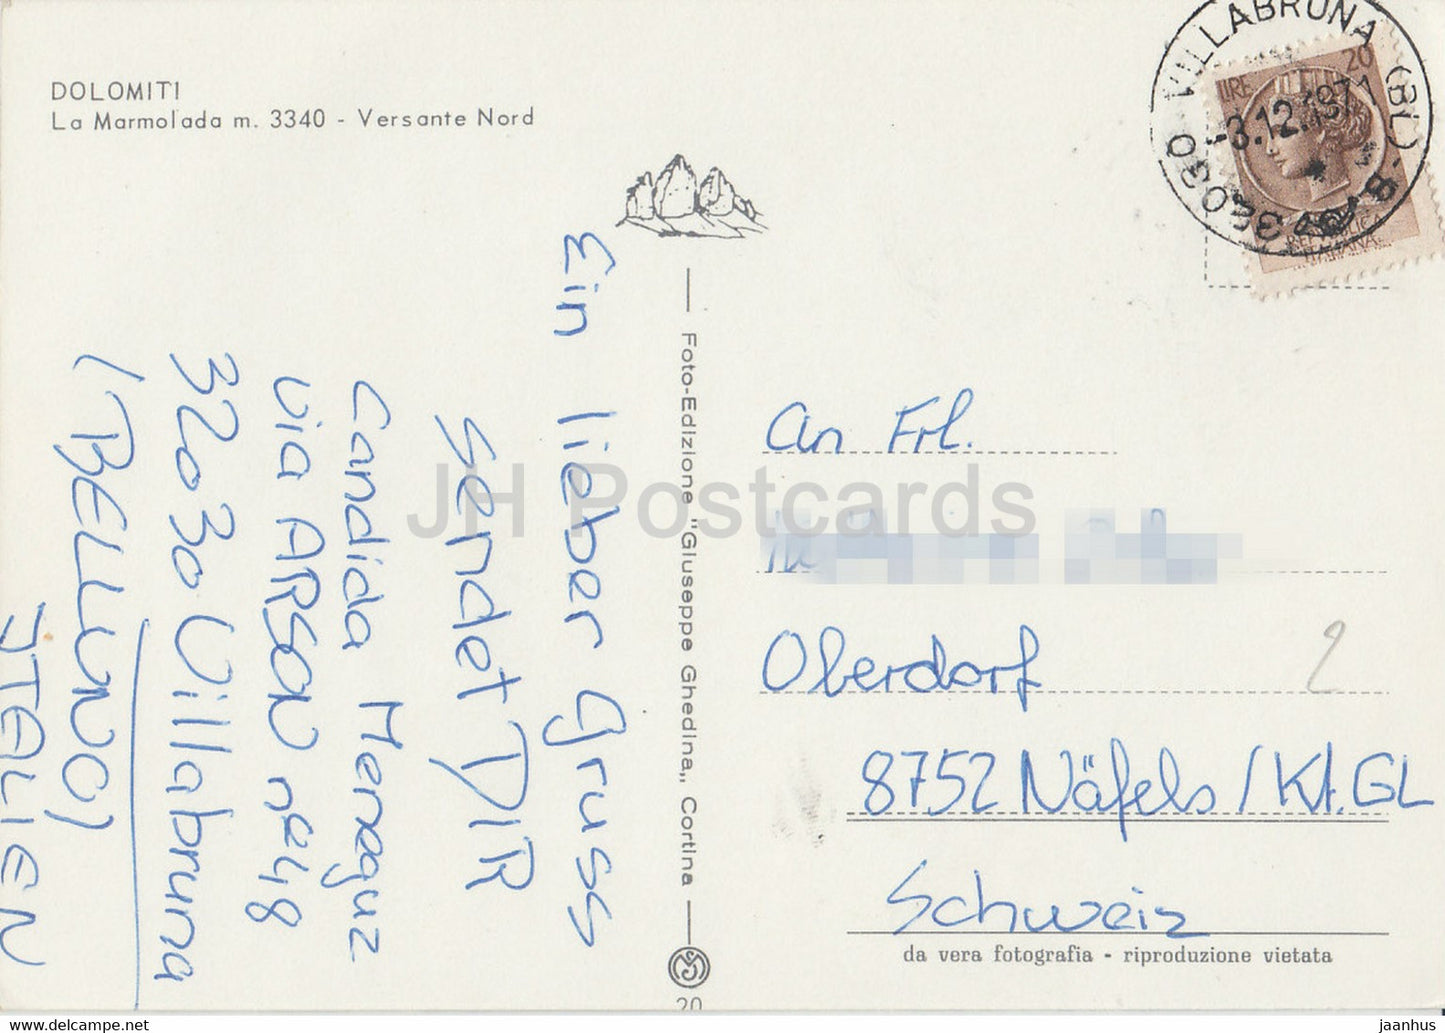 DOLOMITI
La Marmolada m. 3340 - Versante Nord
Ein lieber Gruss
sendet DIR
Candida Meneguz
via ARSON n° 48
32030 Villabruna
(BELLUNO)
ITALIEN
Foto-Edizione "Giuseppe Ghedina„ Cortina
20
VILLABRUNA (BL)
-3.12.1971
LIRE 20
REPUBBLICA
ITALIANA
An Frl.
Oberdorf
2
8752 Näfels / Kt. GL
Schweiz
da vera fotografia - riproduzione vietata
JH Postcards
jaanhus